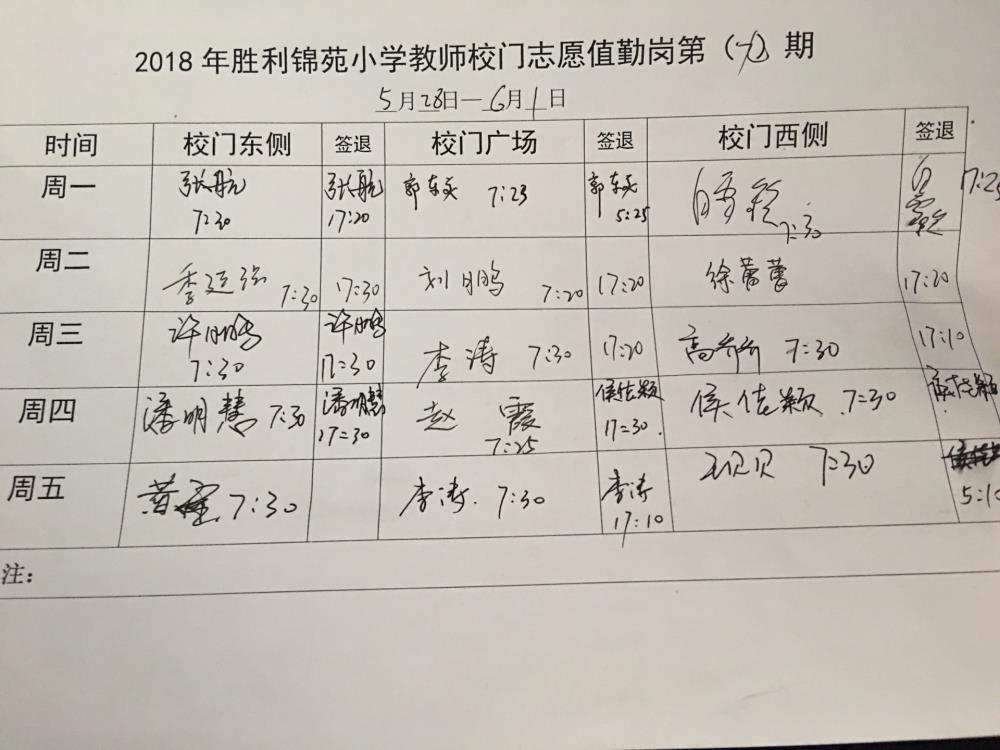 2018年胜利锦苑小学教师校门志愿值勤岗第（ ）期
5月28日—6月1日
时间 校门东侧 签退 校门广场 签退 校门西侧 签退
周一 张航 7:30 张航 17:20 郭东英 7:23 郭东英 5:25 7:30 17:25
周二 季延强 7:30 17:30 刘鹏 7:20 17:20 徐蕾蕾 17:20
周三 许鹏 7:30 许鹏 17:30 李涛 7:30 17:20 高乔乔 7:30 17:10
周四 潘明慧 7:30 潘明慧 17:30 赵霞 7:25 侯佳颖 17:30. 侯佳颖 7:30 侯佳颖
周五 黄 7:30 李涛. 7:30 李涛 17:10 王贝贝 7:30 5:10
注：